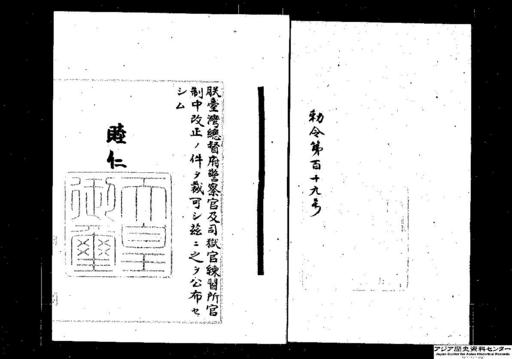 勅令第百十九号
朕臺灣總督府警察官及司獄官練習所官
制中改正ノ件ヲ裁可シ茲ニ之ヲ公布セ
シム
睦仁
天皇
御璽
アジア歴史資料センター
Japan Center for Asian Historical Records